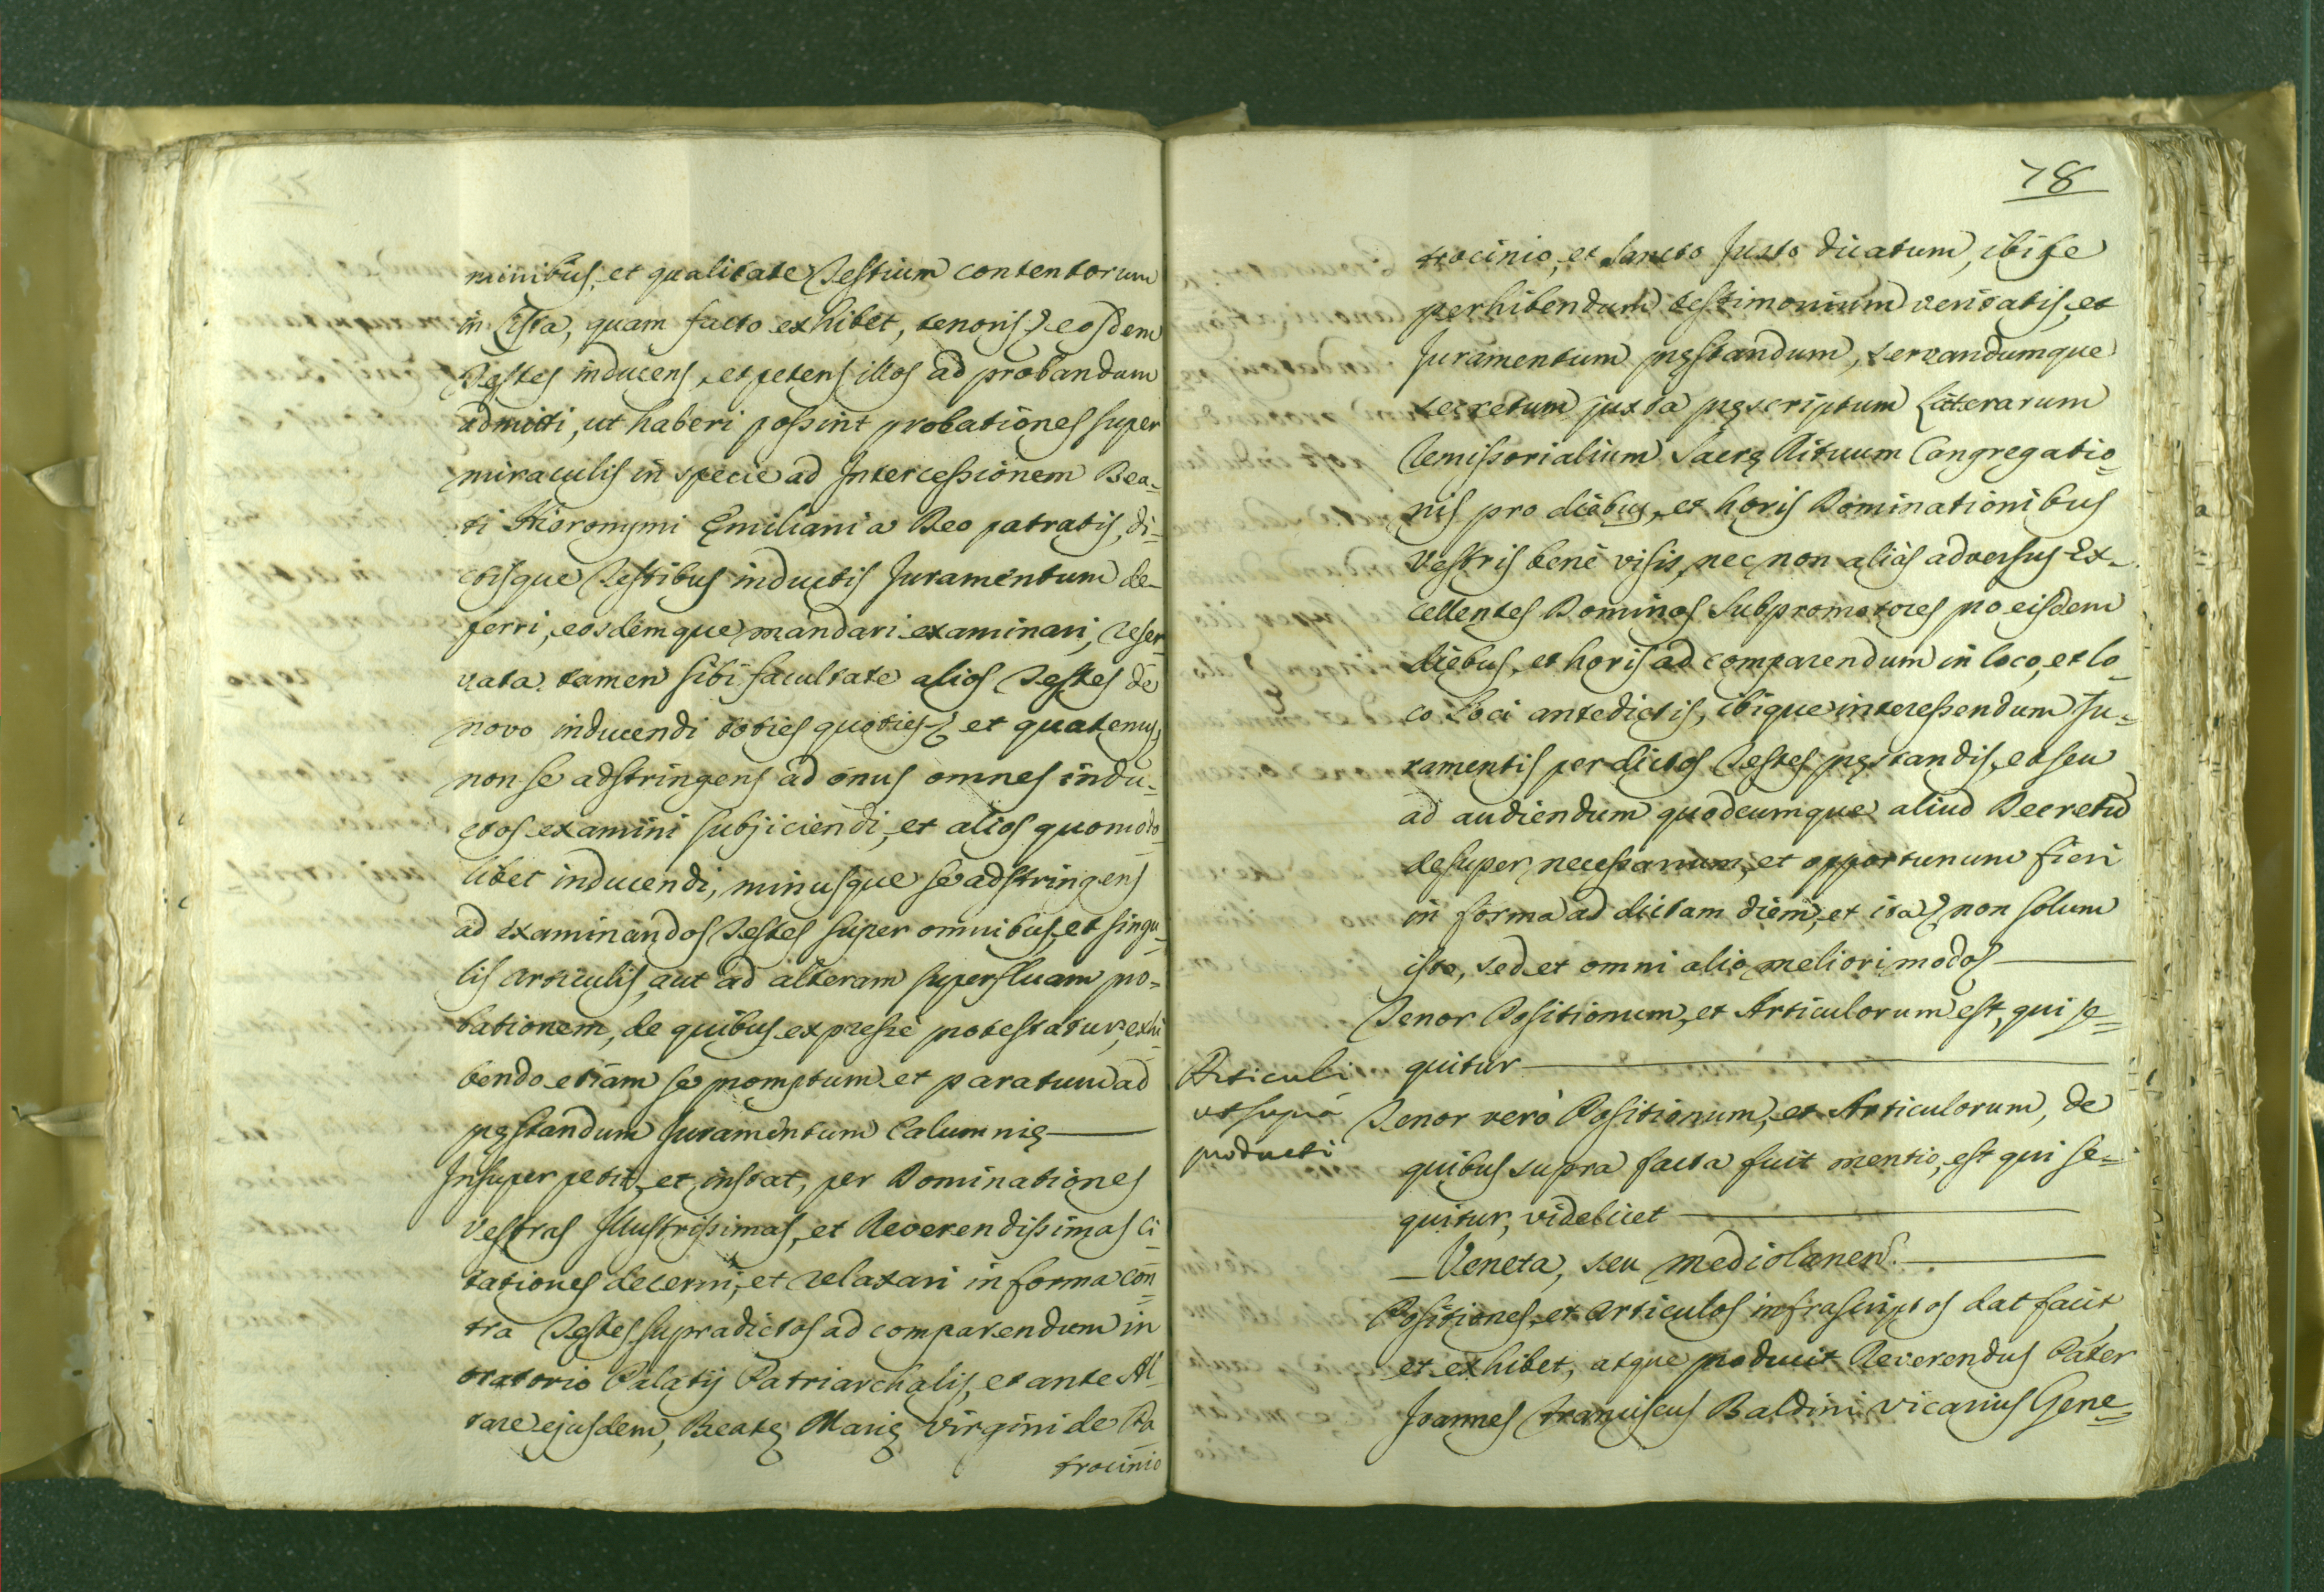 minibus, et qualitate Testium contentorum
in Lista, quam facto exhibet, tenoris & eosdem
Testes inducens, et petens illos ad probandum
admitti, ut haberi possint probationes super
miraculis in specie ad Intercessionem Bea-
ti Hieronymi Emiliani a Deo patratis, di-
ctisque Testibus inductis Juramentum de-
ferri, eosdemque mandari examinari, reser-
vata tamen sibi facultate alios Testes de
novo inducendi toties quoties & et quatenus
non se adstringens ad onus omnes indu-
ctos examini subjiciendi, et alios quomodo-
libet inducendi, minusque se adstringens
ad examinandos Testes super omnibus, et singu-
lis articulis, aut ad alteram superfluam pro-
bationem, de quibus expressè protestatur, exhi-
bendo etiam se promptum et paratum ad
pręstandum Juramentum Calumnię
Insuper petit, et instat, per Dominationes
Vestras Illustrissimas, et Reverendissimas Ci-
tationes decerni, et relaxari in forma con-
tra Testes supradictos ad comparendum in
oratorio Palatij Patriarchalis, et ante Al-
tare ejusdem, Beatę Marię Virgini de Pa
trocinio
78
trocinio, et Sancto Justo dicatum, ibique
perhibendum testimonium veritatis, et
Juramentum pręstandum, servandumque
secretum juxta pręscriptum Litterarum
Remissorialium Sacrę Rituum Congregatio-
nis pro diebus, et horis Dominationibus
Vestris benè visis, nec non aliàs adversus Ex-
cellentes Dominos Subpromotores pro eisdem
diebus, et horis ad comparendum in loco, et lo-
co Loci antedictis, ibique interessendum Ju-
ramentis per dictos Testes pręstandis, et seu
ad audiendum quodcumque aliud Decretũ
desuper necessarium, et opportunum fieri
in forma ad dictam diem, et ita & non solum
isto, sed et omni alio meliori modo &
Tenor Positionum, et Articulorum est, qui se-
quitur
Articuli
ut suprà
producti
Tenor verò Positionum, et Articulorum, de
quibus supra facta fuit mentio, est qui se-
quitur, videlicet
Veneta, seu Mediolanen.
Positiones, et articulos infrascriptos dat facit
et exhibet, atque producit Reverendus Pater
Joannes Franciscus Baldini Vicarius Gene-